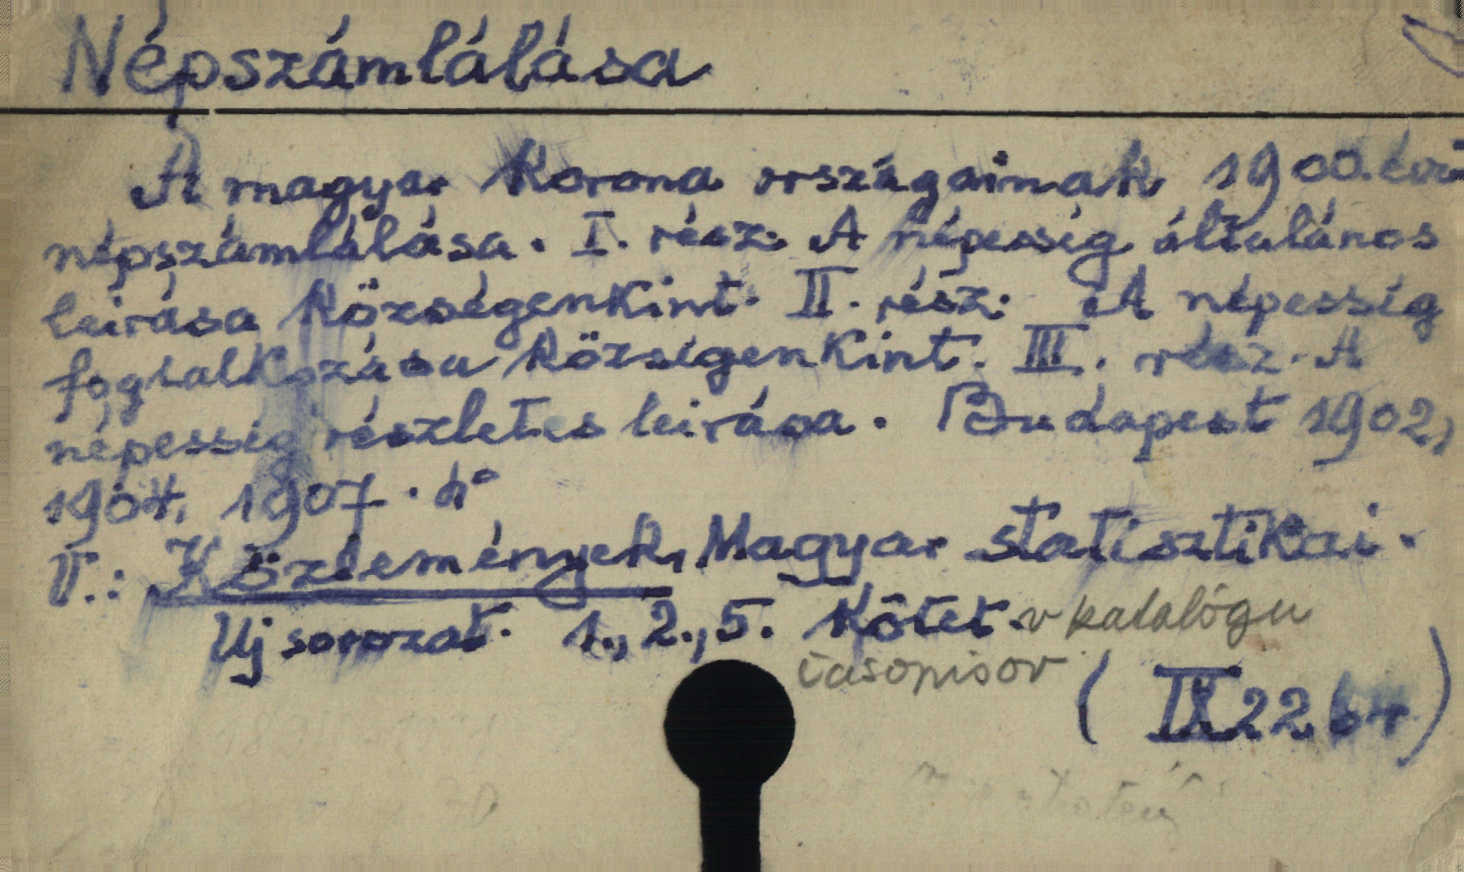 Népszámlálása
A magyar Korona országainak 1900. évi
népszámlálása. I. rész. A népesség általános
leirása Községenkint. II. rész: A népesség
foglalkozása községenkint. III. rész. A
népesség részletes leirása. Budapest 1902,
1904, 1907. 4°
V.: Közlemények, Magyar statisztikai.
Uj sorozat. 1., 2., 5. Kötet. v katalógu
časopisov
( IX 2264 )